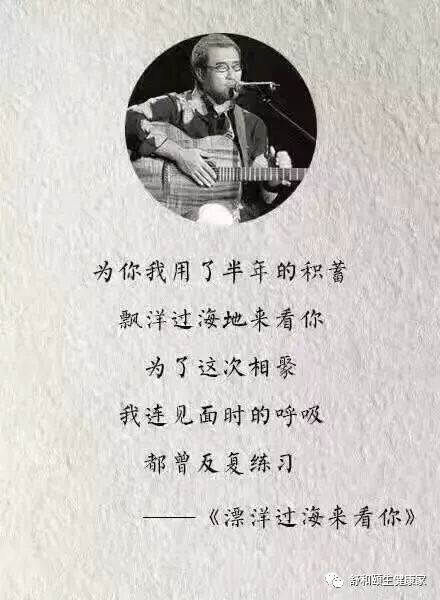 为你我用了半年的积蓄
飘洋过海地来看你
为了这次相聚
我连见面时的呼吸
都曾反复练习
——《漂洋过海来看你》
舒和颐生健康家